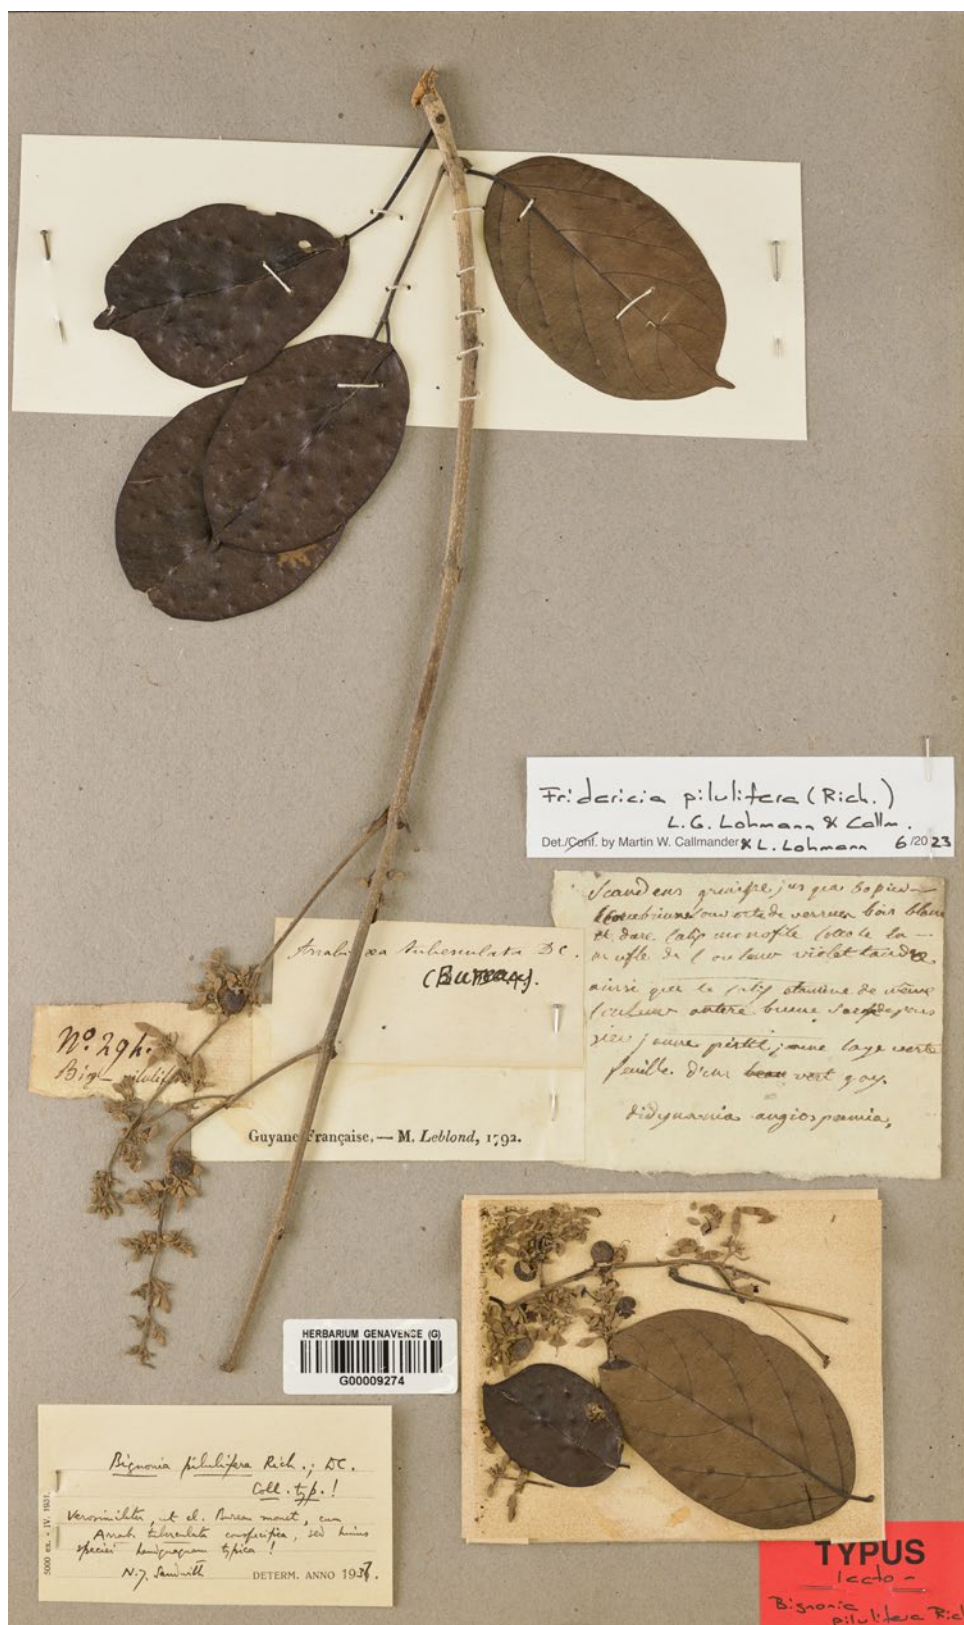 Fridericia pilulifera (Rich.)
L. G. Lohmann & Callm.
Det./Conf. by Martin W. Callmander & L. Lohmann 6/2023
Scandens grimpe jus qua 60 pieds
couvorte de verrues bois blanc
et dur. Calix monofile
mufle de couleur violet tandre
ainsi que le calix etamine de même
couleur antere brune
jaune pistil jaune tage verte
feuille d'un beau vert gay.
didynamia angiospermia,
Arrabidaea tuberculata DC.
(Bureau).
Guyane Française. — M. Leblond, 1792.
No. 294.
Big— pilulifera
HERBARIUM GENAVENSE (G)
G00009274
Bignonia pilulifera Rich.; DC.
Coll. typ.!
Verosimiliter, ut cl. Bureau monet, cum
Arrab. tuberculata conspecifica, sed huius
speciei haudquaquam typica!
N.Y. Sandwith DETERM. ANNO 1937.
5000 ex. - IV. 1931.
TYPUS
lecto-
Bignonia
pilulifera Rich